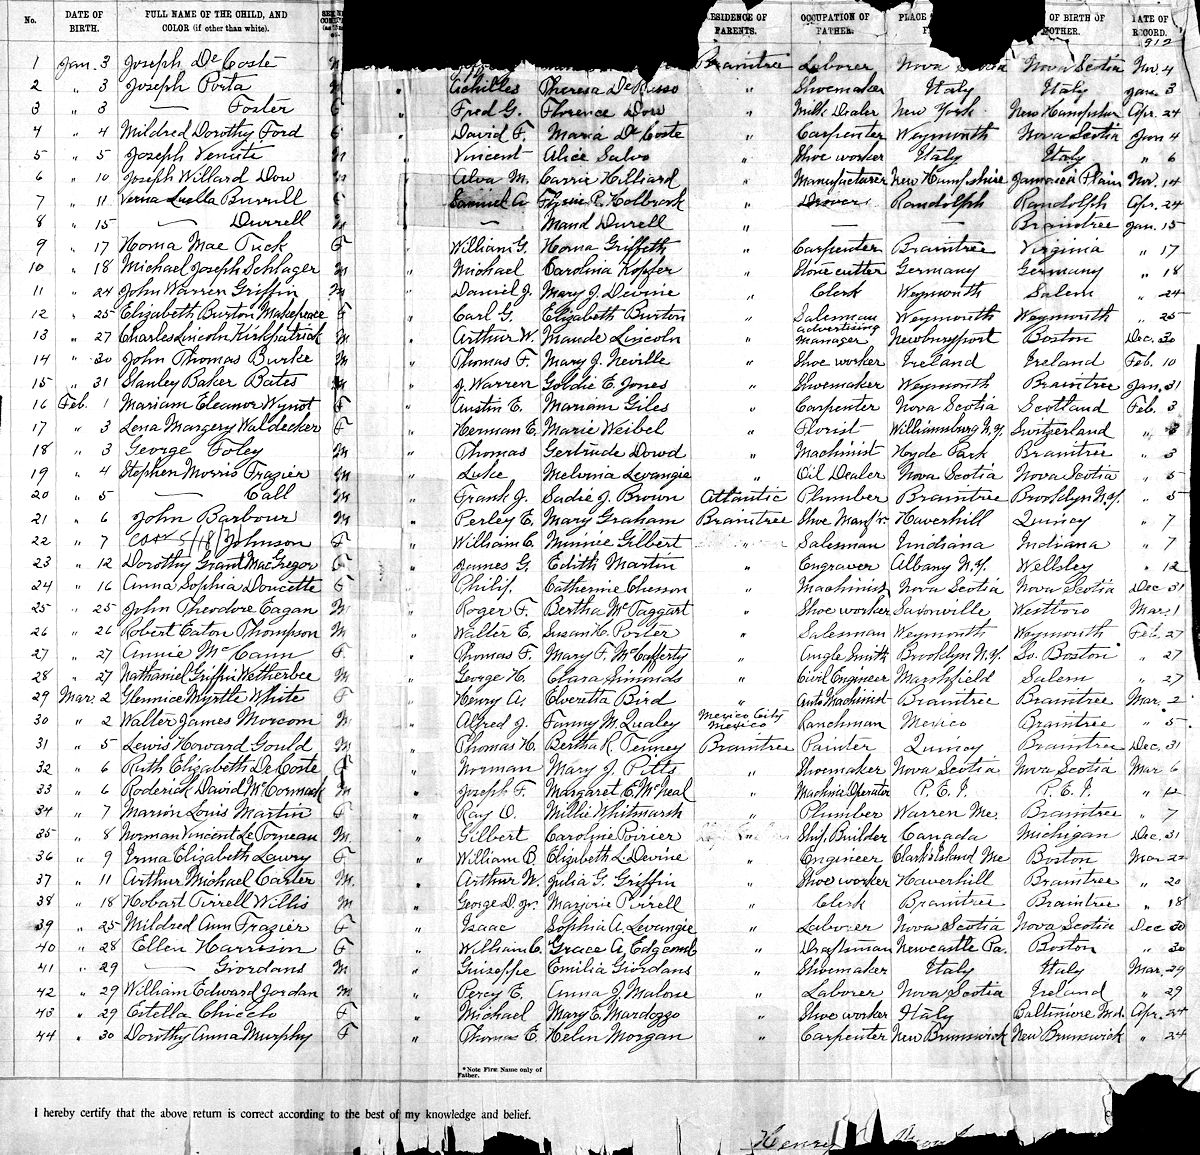 No. DATE OF BIRTH. FULL NAME OF THE CHILD, AND COLOR (if other than white). RESIDENCE OF PARENTS. OCCUPATION OF FATHER. PLACE OF BIRTH OF MOTHER. DATE OF RECORD.
1912
1 Jan. 3 Joseph De Coste M Braintree Laborer Nova Scotia Nova Scotia Nov. 4
2 " 3 Joseph Porta " Achilles Theresa De Russo " Shoemaker Italy Italy Jan. 3
3 " 3 — Foster F " Fred G. Florence Dow " Milk Dealer New York New Hampshire Apr. 24
4 " 4 Mildred Dorothy Ford F " David F. Maria De Coste " Carpenter Weymouth Nova Scotia Jan 4
5 " 5 Joseph Venuti M " Vincent Alice Salvo " Shoe worker Italy Italy " 6
6 " 10 Joseph Willard Dow M " Alva M. Carrie Hilliard " Manufacturer New Hampshire Jamaica Plain Nov. 14
7 " 11 Verna Luella Burrell F " Holbrook " Drover Randolph Randolph Apr. 24
8 " 15 — Durrell M " — Maud Durrell " — — Braintree Jan. 15
9 " 17 Homa Mae Tuck F " William G. Homa Griffeth " Carpenter Braintree Virginia " 17
10 " 18 Michael Joseph Schlager M " Michael Carolina Kopfer " Stone cutter Germany Germany " 18
11 " 24 John Warren Griffin M " Daniel J. Mary J. Devine " Clerk Weymouth Salem " 24
12 " 25 Elizabeth Burton Makepeace F " Carl G. Elizabeth Burton " Salesman Weymouth Weymouth " 25
13 " 27 Charles Lincoln Kirkpatrick M " Arthur W. Maude Lincoln " Advertising manager Newburyport Boston Dec. 30
14 " 30 John Thomas Burke M " Thomas F. Mary J. Neville " Shoe worker Ireland Ireland Feb. 10
15 " 31 Stanley Baker Bates M " J. Warren Goldie E. Jones " Shoemaker Weymouth Braintree Jan. 31
16 Feb. 1 Mariam Eleanor Wynot F " Austin E. Mariam Giles " Carpenter Nova Scotia Scotland Feb. 3
17 " 3 Lena Margery Waldecker F " Herman E. Marie Weibel " Florist Williamsburg N.Y. Switzerland " 3
18 " 3 George Foley M " Thomas Gertrude Dowd " Machinist Hyde Park Braintree " 3
19 " 4 Stephen Morris Frazier M " Luke Melvina Levangie " Oil Dealer Nova Scotia Nova Scotia " 5
20 " 5 — Call M " Frank J. Sadie J. Brown Atlantic Plumber Braintree Brooklyn N.Y. " 5
21 " 6 John Barbour M " Perley E. Mary Graham Braintree Shoe Manf'r. Haverhill Quincy " 7
22 " 7 Johnson F " William E. Minnie Gilbert Salesman Indiana Indiana " 7
23 " 12 Dorothy Grant MacGregor F " James G. Edith Martin " Engraver Albany N.Y. Wellsley " 12
24 " 16 Anna Sophia Doucette F " Philip. Catherine Chesson " Machinist Nova Scotia Nova Scotia Dec 31
25 " 25 John Theodore Eagan M " Roger F. Bertha McTaggart " Shoe worker Saxonville Westboro Mar. 1
26 " 26 Robert Eaton Thompson M " Walter E. Susan H. Porter " Salesman Weymouth Weymouth Feb. 27
27 " 27 Annie McCann F " Thomas F. Mary F. McCafferty " Angle Smith Brooklyn N.Y. So. Boston " 27
28 " 27 Nathaniel Griffin Wetherbee M " George H. Clara Simonds " Civil Engineer Marshfield Salem " 27
29 Mar. 2 Glennice Myrtle White F " Henry A. Elveretta Bird " Auto Machinist Braintree Braintree Mar. 2
30 " 2 Walter James Morcom M " Alfred J. Fanny M. Qualey Mexico City Mexico Ranchman Mexico Braintree " 5
31 " 5 Lewis Howard Gould M " Thomas H. Bertha R. Tenney Braintree Painter Quincy Braintree Dec. 31
32 " 6 Ruth Elizabeth De Coste F " Norman Mary J. Pitts " Shoemaker Nova Scotia Nova Scotia Mar 6
33 " 6 Roderick David McCormack M " Joseph F. Margaret E. McNeal " Machine Operator P.E.I. P.E.I. " 12
34 " 7 Marion Louis Martin F " Ray O. Millie Whitmarsh " Plumber Warren Me. Braintree " 7
35 " 8 Norman Vincent Le Torneau M " Gilbert Caroline Poirier Ship Builder Canada Michigan Dec. 31
36 " 9 Irma Elizabeth Lawry F " William B. Elizabeth L. Devine " Engineer Clark's Island Me Boston Mar. 22
37 " 11 Arthur Michael Carter M. " Arthur W. Julia G. Griffin " Shoe worker Haverhill Braintree " 20
38 " 18 Hobart Pirrell Willis M " George D. Jr. Marjorie Pirrell " Clerk Braintree Braintree " 18
39 " 25 Mildred Ann Frazier F " Isaac Sophia A. Levangie " Laborer Nova Scotia Nova Scotia Dec 30
40 " 28 Ellen Harrison F " William C. Grace A. Edgcomb " Draftsman Newcastle Pa. Boston " 30
41 " 29 — Giordans M " Guiseppe Emilia Giordans " Shoemaker Italy Italy Mar. 29
42 " 29 William Edward Jordan M " Percy E. Anna J. Malone " Laborer Nova Scotia Ireland " 29
43 " 29 Estella Chiceto F " Michael Mary E. Mardozzo " Shoe worker Italy Baltimore Md. Apr. 24
44 " 30 Dorothy Anna Murphy F " Thomas E. Helen Morgan " Carpenter New Brunswick New Brunswick " 24
*Note First Name only of Father.
I hereby certify that the above return is correct according to the best of my knowledge and belief.
Henry